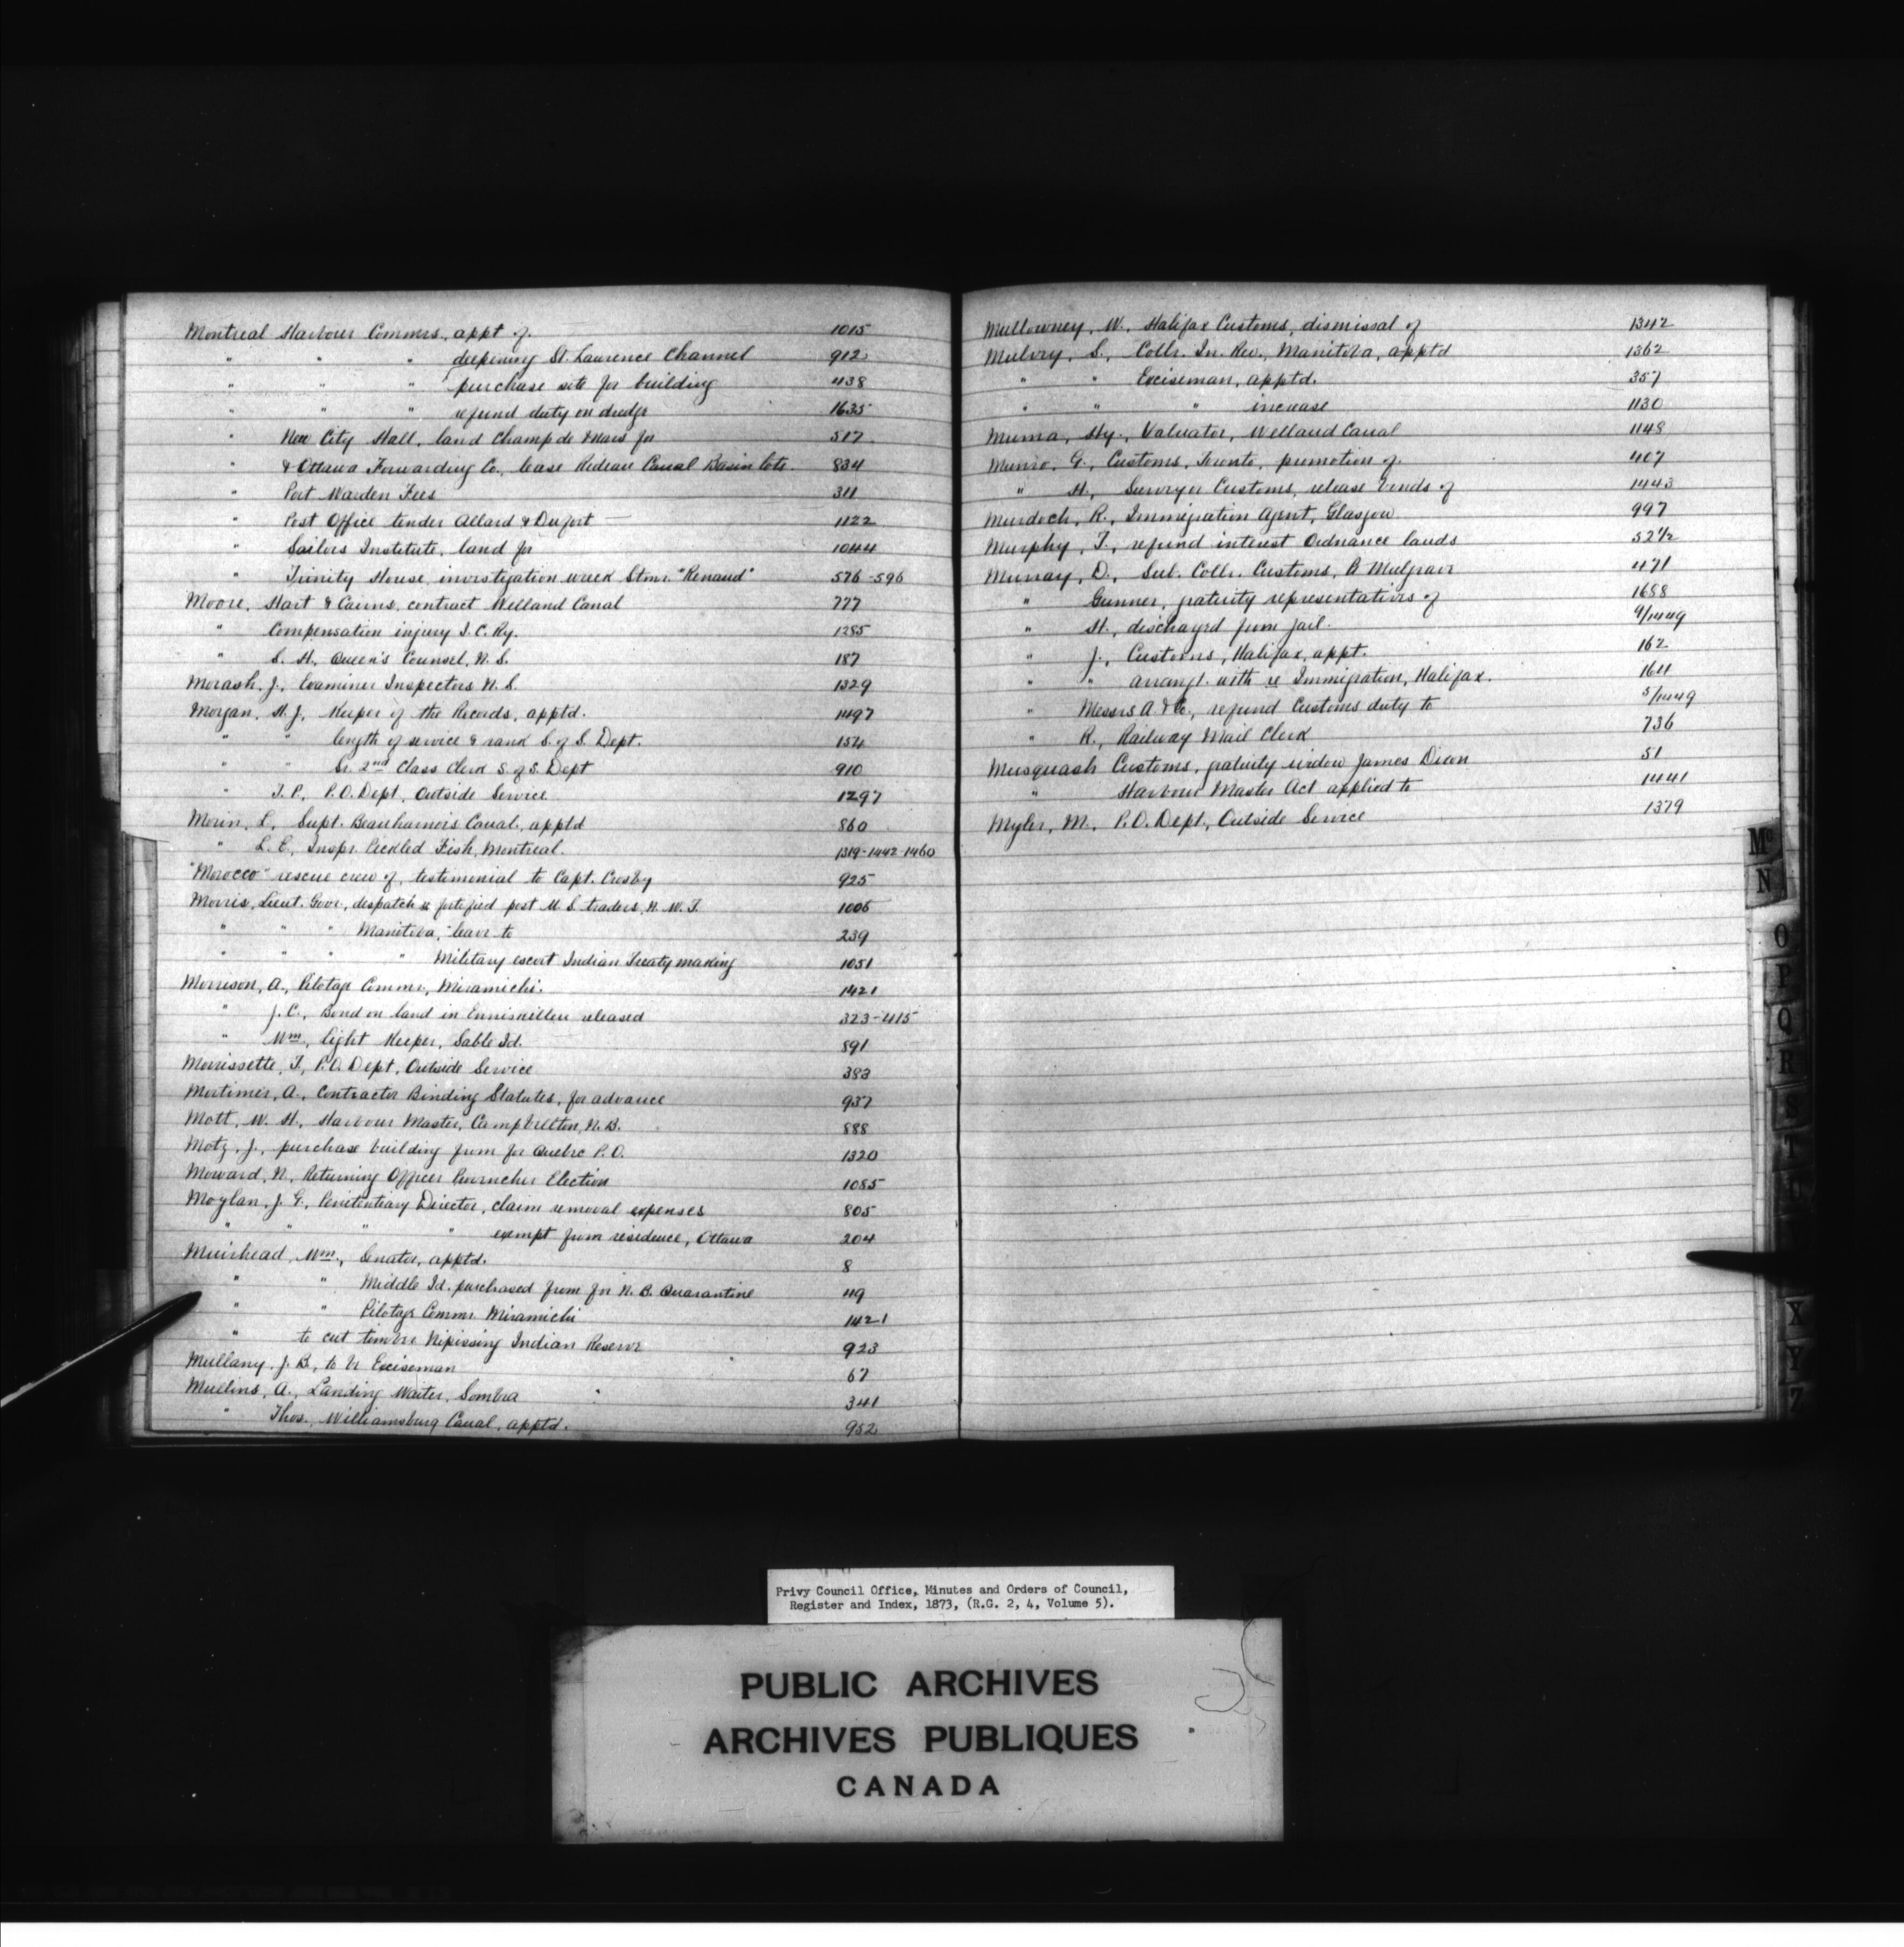 Montreal Harbour Commrs, appt of. 1015
" " " deepening St. Lawrence Channel 912
" " " purchase site for building 438
" " " refund duty on dredge 1635
" New City Hall, land Champ de Mars for 517
" & Ottawa Forwarding Co., lease Rideau Canal Basin lots. 834
" Port Warden Fees 311
" Post Office tender Allard & Dufort 1122
" Sailors Institute, land for 1044
" Trinity House, investigation wreck Stmr. "Renaud" 576-596
Moore, Hart & Cairns, contract Welland Canal 777
" Compensation injury I.C. Ry. 1285
" S. H., Queen's Counsel, N.S. 187
Morash, J., Examiner Inspectors N.S. 1329
Morgan, H. J., Keeper of the Records, apptd. 1497
" " length of service & rank S. of S. Dept. 154
" " Sr. 2nd Class Clerk S. of S. Dept 910
" T. P., P.O. Dept, Outside Service 1297
Morin, L., Supt. Beauharnois Canal, apptd 860
" L. E., Inspr. Pickled Fish, Montreal. 1319-1442-1460
"Morocco" rescue crew of, testimonial to Capt. Crosby 925
Morris, Lieut. Govr., despatch re fortified post U.S. traders, N.W.T. 1006
" " " Manitoba, leave to 239
" " " " Military escort Indian Treaty making 1051
Morrison, A., Pilotage Commr, Miramichi. 1421
" J. C., Bond on land in Enniskillen released 323-415
" Wm, light Keeper, Sable Id. 891
Morrissette, T, P.O. Dept, Outside Service 383
Mortimer, A., Contractor Binding Statutes, for advance 937
Mott, W. H., Harbour Master, Campbellton, N.B. 888
Motz, J., purchase building from for Quebec P.O. 1320
Moward, N., Returning Officer Provencher Election 1085
Moylan, J. G., Penitentiary Director, claim removal expenses 805
" " " " exempt from residence, Ottawa 204
Muirhead, Wm., Senator, apptd. 8
" " Middle Id. purchased from for N.B. Quarantine 49
" " Pilotage Commr Miramichi 1421
" to cut timber Nipissing Indian Reserve 923
Mullany, J. B., to be Exciseman 67
Mullins, A., Landing Waiter, Sombra 341
" Thos., Williamsburg Canal, apptd. 952
Mullowney, W., Halifax Customs, dismissal of 1342
Mulvey, S., Collr. In. Rev., Manitoba, apptd 1362
" " Exciseman, apptd. 357
" " " increase 1130
Muma, Hy., Valuator, Welland Canal 1148
Munro, G., Customs, Toronto, promotion of. 407
" H., Surveyor Customs, release bonds of 1443
Murdoch, R., Immigration Agent, Glasgow 997
Murphy, T., refund interest Ordnance lands 52½
Murray, D., Sub. Collr. Customs, P. Mulgrave 471
" Gunner, gratuity representatives of 1688
" H., discharged from jail. 9/1449
" J., Customs, Halifax, appt. 162
" " arrangt. with re Immigration, Halifax. 1611
" Messrs A. & Co., refund Customs duty to 5/1449
" R., Railway Mail Clerk 736
Musquash Customs, gratuity widow James Dixon 51
" Harbour Master Act applied to 1441
Myler, M., P.O. Dept., Outside Service 1379
Mc
N
O
P
Q
R
S
T
X
Y
Z
Privy Council Office, Minutes and Orders of Council,
Register and Index, 1873, (R.G. 2, 4, Volume 5).
PUBLIC ARCHIVES
ARCHIVES PUBLIQUES
CANADA